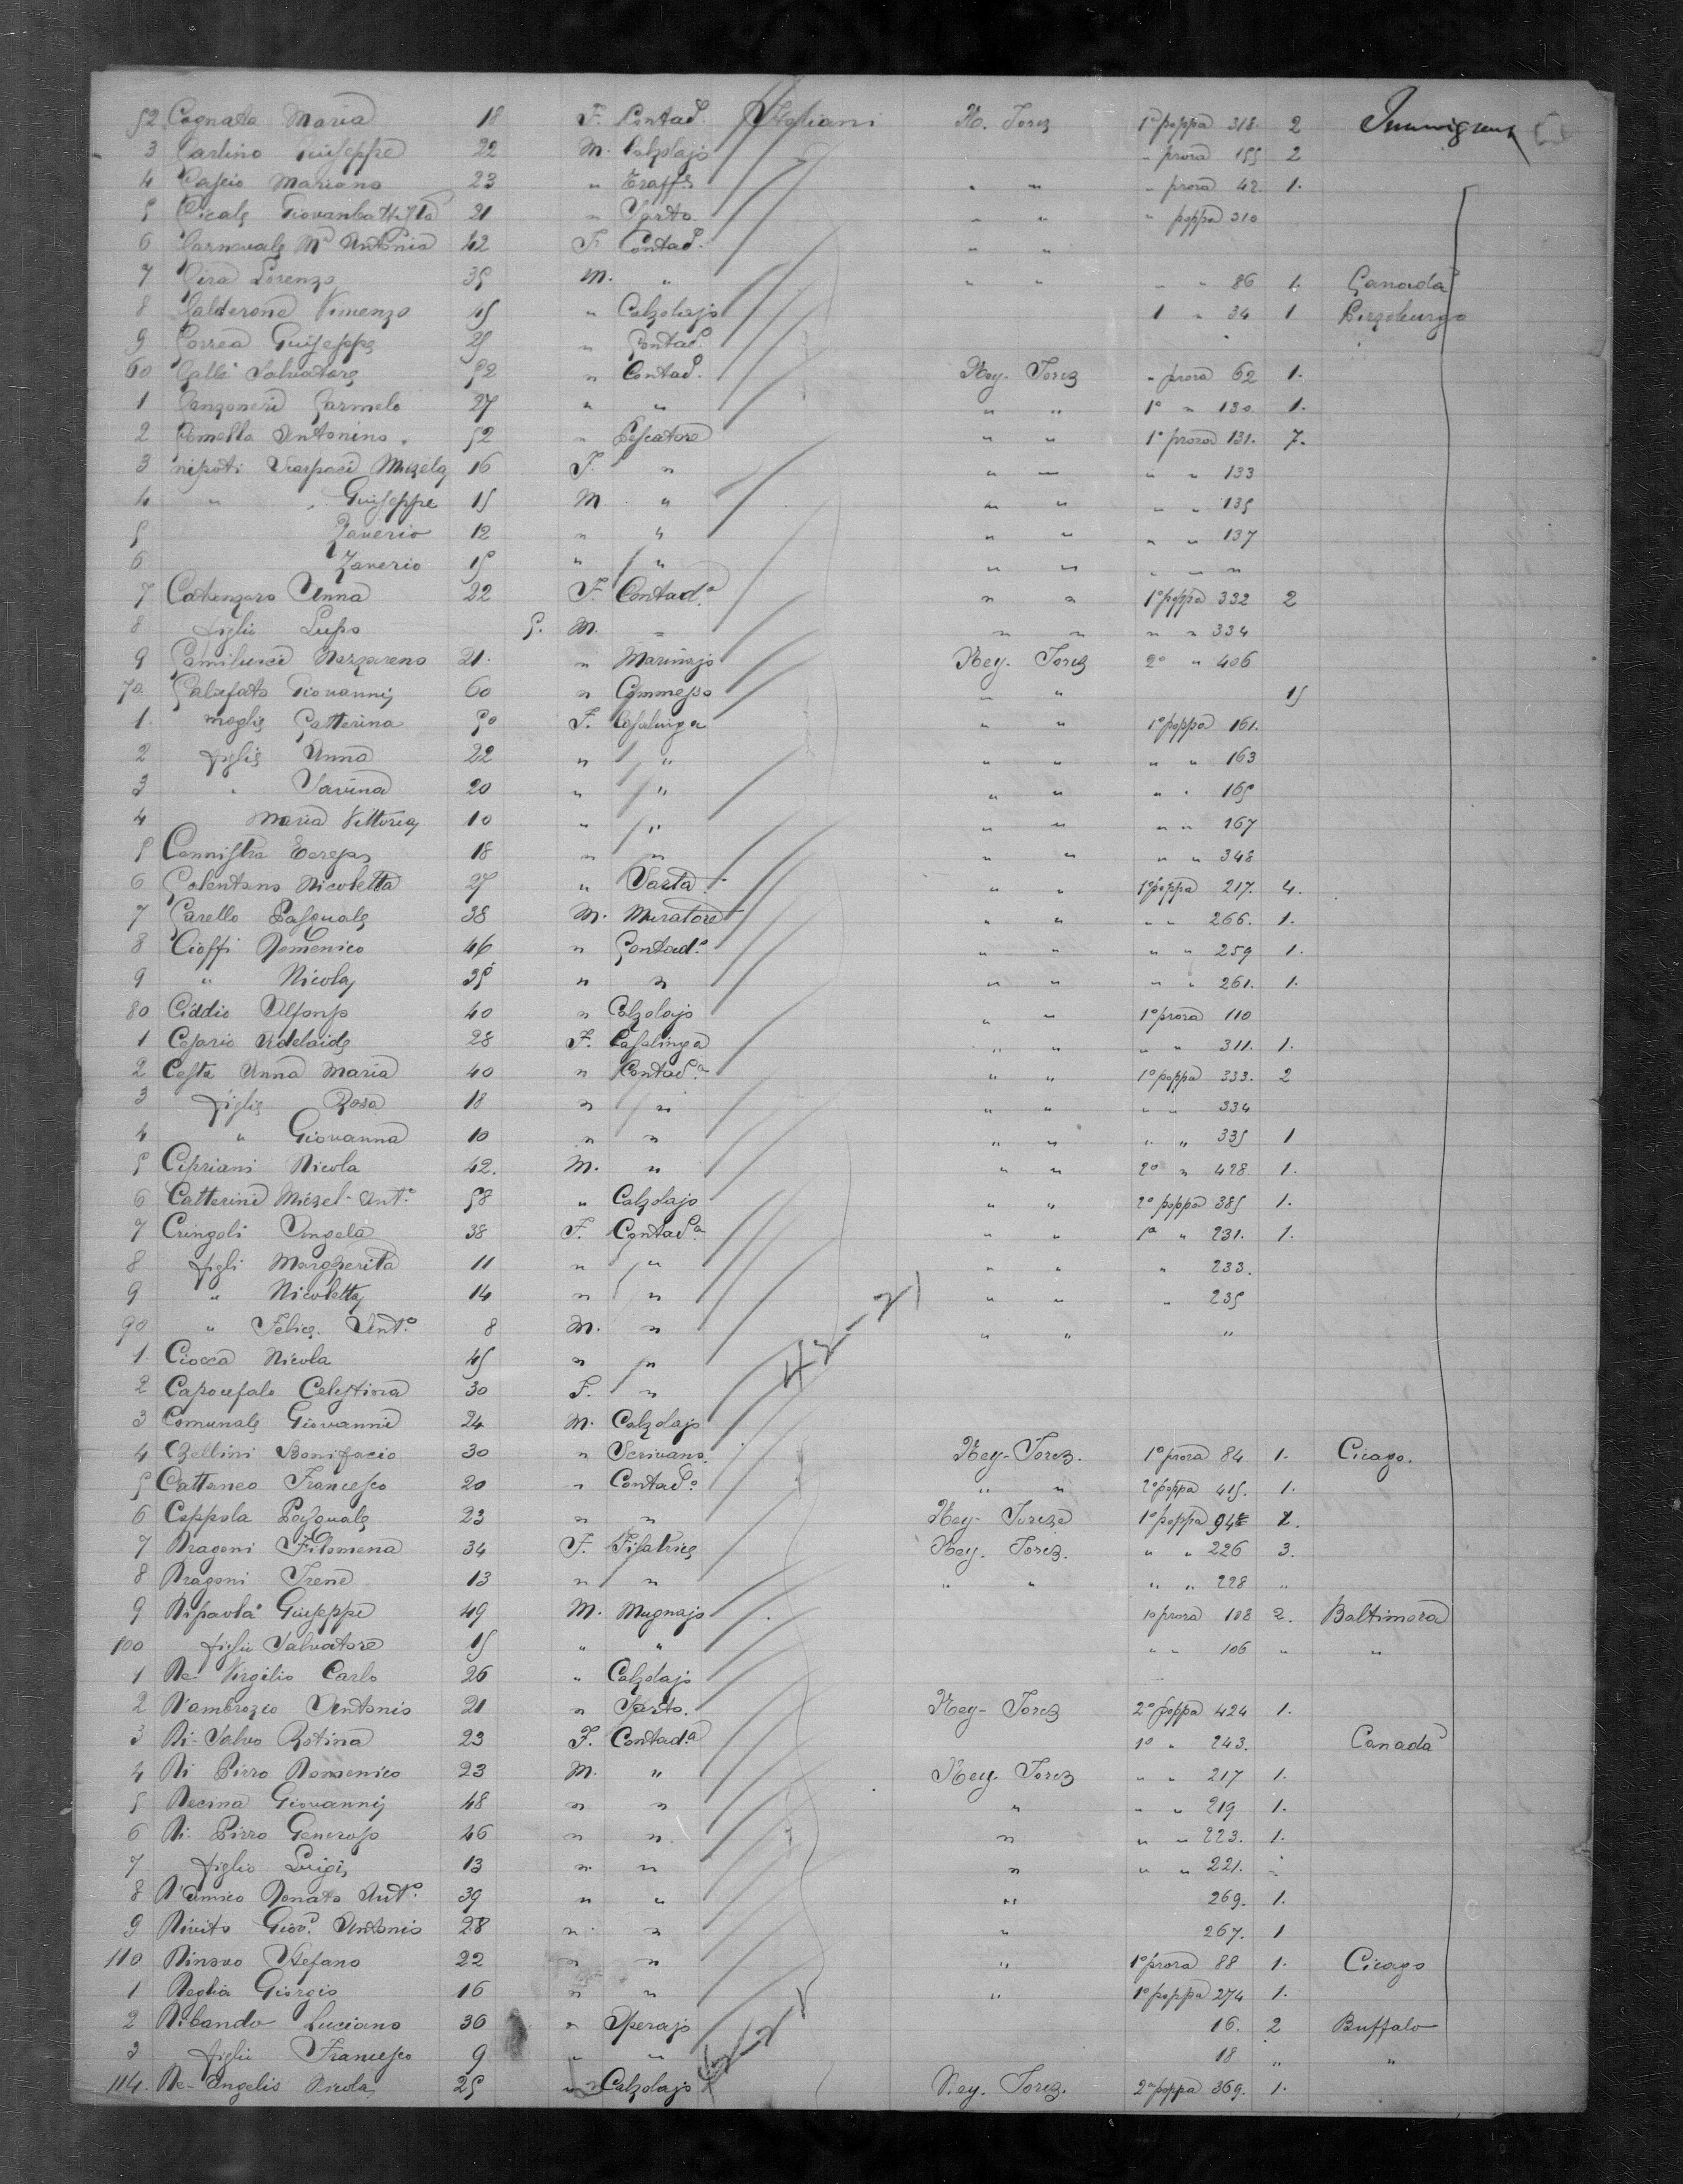 52 Cognata Maria 18 F. Contad.ª Italiani N. Jorch 1º poppa 318. 2 Immigrant
3 Carlino Giuseppe 22 M. Calzolajo " prora 155 2
4 Cascio Mariano 23 " " " " prora 42. 1.
5 Cicale Giovanbattista 21 " Sarto " " " poppa 310
6 Carnevale Mª Antonia 42 F. Contad.ª " "
7 Cira Lorenzo 35 M. " " " " " 86 1. Canada
8 Calderone Vincenzo 45 " Calzolajo 1 " 34 1
9 Correa Giuseppe 25 " Contad.º
60 Galle Salvatore 52 " Contad.º Ney. Jorch " prora 62 1.
1 Canzoneri Carmelo 27 " " " " 1º " 130. 1.
2 Comella Antonino. 52 " Pescatore " " 1º prora 131. 7.
3 nipoti 16 F. " " " " " 133
4 " Giuseppe 15 M. " " " " " 135
5 Zaverio 12 " " " " " " 137
6 Zaverio 15 " " " " " " "
7 Catanzaro Anna 22 F. Contad.ª " " 1º poppa 332 2
8 figlio Lupo 5. M. " " " " " 334
9 Nazzareno 21. " Marinajo Ney. Jorch 2º " 406
70 Calafato Giovanni 60 " Commesso " " 15
1. moglie Catterina 50 F. Casalinga " " 1º poppa 161.
2 figlie Anna 22 " " " " " " 163
3 " Savina 20 " " " " " " 165
4 Maria Vittoria 10 " " " " " " 167
5 Cannistra 18 " " " " " " 348
6 Colentano Nicoletta 27 " Sarta " " 1º poppa 217. 4.
7 Carello Pasquale 38 M. Muratore " " " " 266. 1.
8 Cioffi Domenico 46 " Contad.º " " " " 259 1.
9 " Nicola 35 " " " " " " 261. 1.
80 Ciddio Alfonso 40 " Calzolajo " " 1º prora 110
1 Cesario Adelaide 28 F. Casalinga " " " " 311. 1.
2 Costa Anna Maria 40 " Contad.ª " " 1º poppa 333. 2
3 figlie Rosa 18 " " " " " " 334
4 " Giovanna 10 " " " " " " 335 1
5 Cipriani Nicola 42. M. " " " 2º " 428. 1.
6 Catterini Michel-Ant.º 58 " Calzolajo " " 2º poppa 385 1.
7 Cringoli Angela 38 F. Contad.ª " " 1ª " 231. 1.
8 figli Margherita 11 " " " " " 233.
9 " Nicoletta 14 " " " " " 235
90 " Felice Ant.º 8 M. " " " "
1. Ciocca Nicola 45 " "
2 Capocefalo Celestina 30 F. "
3 Comunale Giovanni 24 M. Calzolajo
4 Cellini Bonifacio 30 " Scrivano Ney-Jorch. 1º prora 84. 1. Cicago.
5 Cattaneo Francesco 20 " Contad.º " " 2º poppa 415. 1.
6 Coppola Pasquale 23 " " Ney- 1º poppa
7 Dragoni Filomena 34 F. Filatrice Ney. Jorch. " " 226 3.
8 Dragoni Irene 13 " " " " " " 228 "
9 Dipaola Giuseppe 49 M. Mugnajo 1º prora 108 2. Baltimora
100 figlio Salvatore 15 " " " " 106 " "
1 De Virgilio Carlo 26 " Calzolajo
2 D'ambrozio Antonio 21 " Sarto. Ney- Jorch 2º poppa 424 1.
3 Di-Salvo 23 F. Contad.ª 1º " 243. Canada
4 Di Pirro Domenico 23 M. " Ney. Jorch " " 217 1.
5 Decina Giovanni 48 " " " " " 219 1.
6 Di Pirro Generoso 46 " " " " " 223. 1.
7 figlio Luigi 13 " " " " " 221. "
8 D'amico Donato Ant.º 39 " " " 269. 1.
9 Divito Giov. Antonio 28 " " " 267. 1
110 Dinovo Stefano 22 " " " 1º prora 88 1. Cicago
1 Deglia Giorgio 16 " " " 1º poppa 274 1.
2 Dibando Luciano 36 " Operajo 16. 2 Buffalo
3 figlio Francesco 9 " " 18 " "
114. De-Angelis Nicola 25 " Calzolajo Ney. Jorch. 2ª poppa 369. 1.